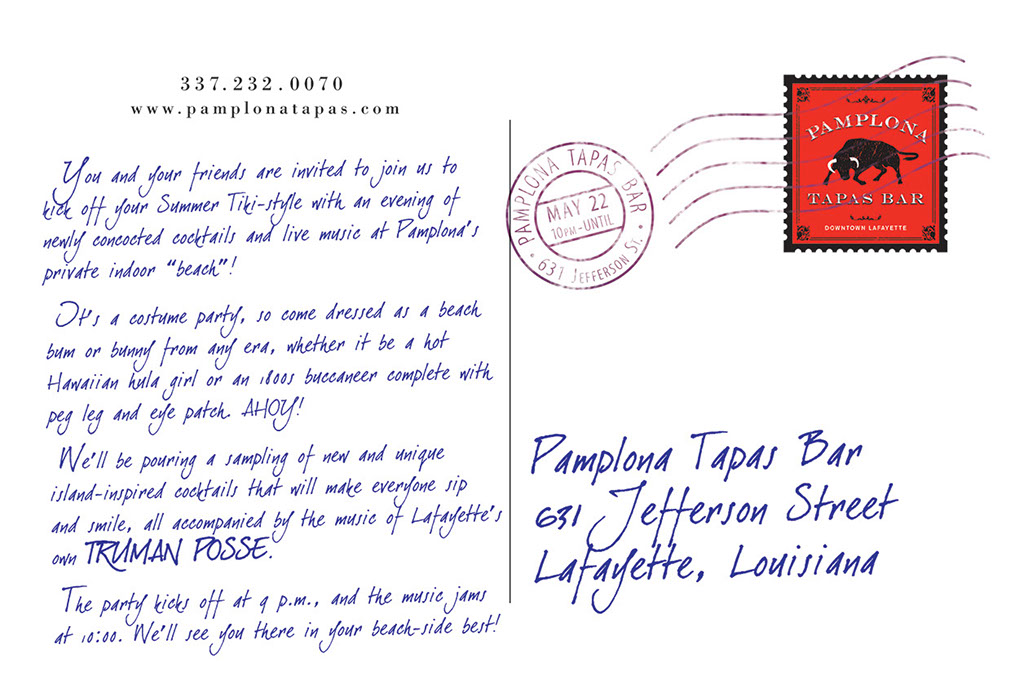 337.232.0070
www.pamplonatapas.com
You and your friends are invited to join us to
kick off your Summer Tiki-style with an evening of
newly concocted cocktails and live music at Pamplona's
private indoor "beach"!
It's a costume party, so come dressed as a beach
bum or bunny from any era, whether it be a hot
Hawaiian hula girl or an 1800s buccaneer complete with
peg leg and eye patch. AHOY!
We'll be pouring a sampling of new and unique
island-inspired cocktails that will make everyone sip
and smile, all accompanied by the music of Lafayette's
own TRUMAN POSSE.
The party kicks off at 9 p.m., and the music jams
at 10:00. We'll see you there in your beach-side best!
PAMPLONA TAPAS BAR
MAY 22
10PM-UNTIL
• 631 JEFFERSON ST. •
PAMPLONA
TAPAS BAR
DOWNTOWN LAFAYETTE
Pamplona Tapas Bar
631 Jefferson Street
Lafayette, Louisiana